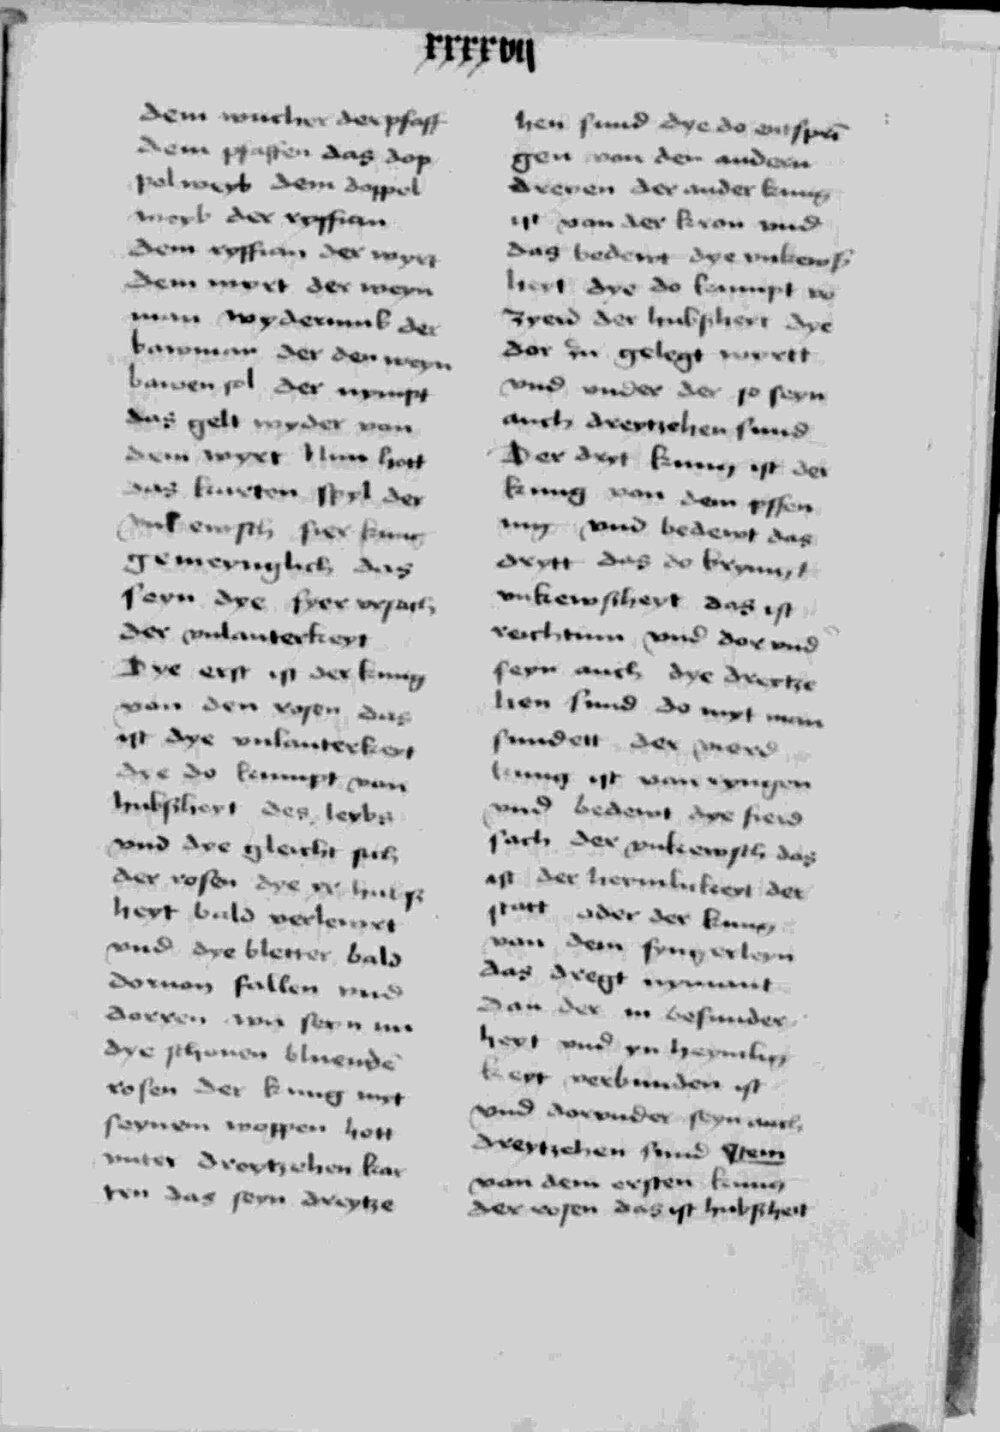 xxxxvii
dem wucher der pfaff
dem pfaffen das dop
pel weyb dem doppel
weyb der ryffian
dem ryffian der wyrt
dem wyrt der weyn
man wyderumb der
bawman der den weyn
bawen sol der nympt
das gelt wyder von
dem wyrt Nun hott
das karten spyl der
vnkewsch fier kung
gemeynglich das
seyn dye fyer vrsach
der vnlauterkeyt
Dye erst ist der kung
von den rosen das
ist dye vnlauterkeyt
dye do kumpt von
hubscheyt des leybs
vnd dye gleicht sich
der rosen dye yr hubsz
heyt bald verlewrt
vnd dye bletter bald
dorvon fallen vnd
dorren wir seyn nu
dye schonen bluende
rosen der kung myt
seynem woppen hott
vnter dreytzehen kar
ten das seyn dreytze
hen sund dye do entspri
gen von den andern
dreyen der ander kung
ist von der kron vnd
das bedewt dye vnkewsz
heyt dye do kumpt vo
zyerd der hubszheyt dye
dor in gelegt wyrtt
vnd vnder der so seyn
auch dreytzehen sund
Der dryt kung ist der
kung von dem
vnd bedewt das
drytt das do bryngt
vnkewszheyt das ist
reichtum vnd dor vnd
seyn auch dye dreytze
hen sund do myt man
sundett der vierd
kung ist von ryngen
vnd bedewt dye fierd
sach der vnkewsch das
ist der heymlickeyt der
statt oder der kung
von dem fyngerleyn
das dregt nymant
dan der in besunder
heyt vnd yn heymlig
keyt verbunden ist
vnd dorvnder seyn auch
dreytzehen sund Item
von dem ersten kung
der rosen das ist hubszheit